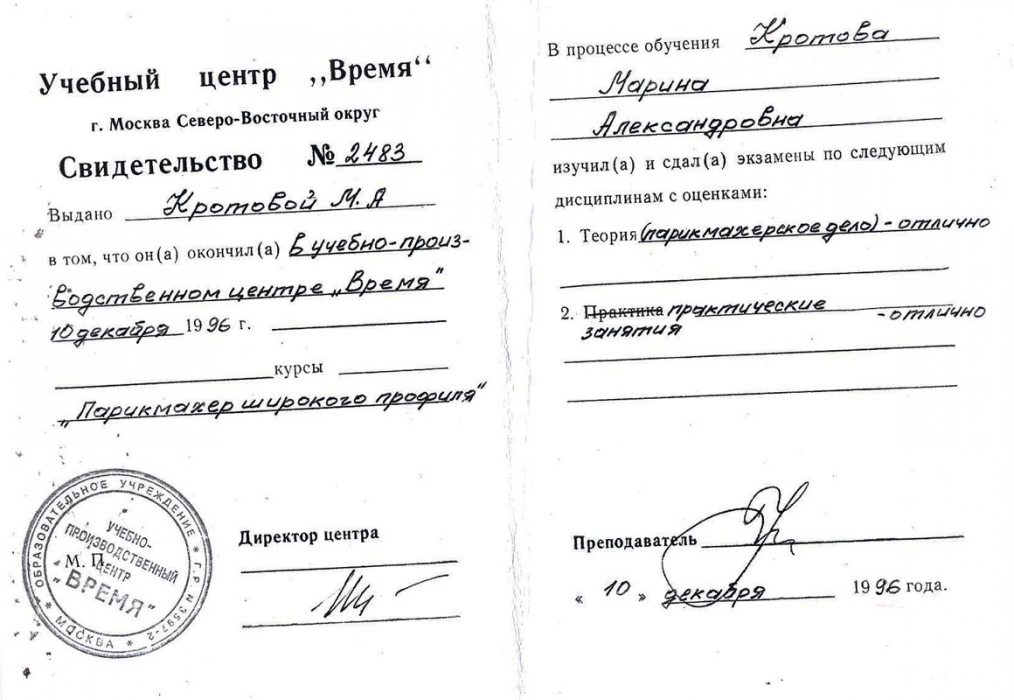 Учебный центр ,,Время“
г. Москва Северо-Восточный округ
Свидетельство № 2483
Выдано Кротовой М.А
в том, что он(а) окончил(а) В учебно-произ-
водственном центре „Время"
10 декабря 1996 г.
курсы
„Парикмахер широкого профиля"
ОБРАЗОВАТЕЛЬНОЕ УЧРЕЖДЕНИЕ * Г.Р. N3597-2 * МОСКВА *
УЧЕБНО-
ПРОИЗВОДСТВЕННЫЙ
ЦЕНТР
„ВРЕМЯ"
М. П.
Директор центра
В процессе обучения Кротова
Марина
Александровна
изучил(а) и сдал(а) экзамены по следующим
дисциплинам с оценками:
1. Теория (парикмахерское дело) - отлично
2. Практика практические - отлично
занятия
Преподаватель
« 10 » декабря 1996 года.